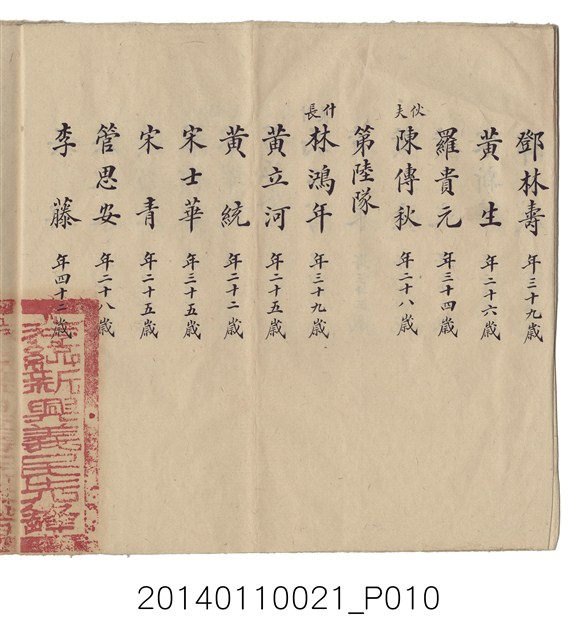 鄧林壽 年三十九歲
黃生 年二十六歲
羅貴元 年三十四歲
伙夫 陳傳秋 年二十八歲
第陸隊
什長 林鴻年 年三十九歲
黃立河 年二十五歲
黃統 年二十二歲
宋士華 年三十五歲
宋青 年二十五歲
管思安 年二十八歲
李藤 年四十二歲
新興義民先鋒
20140110021_P010